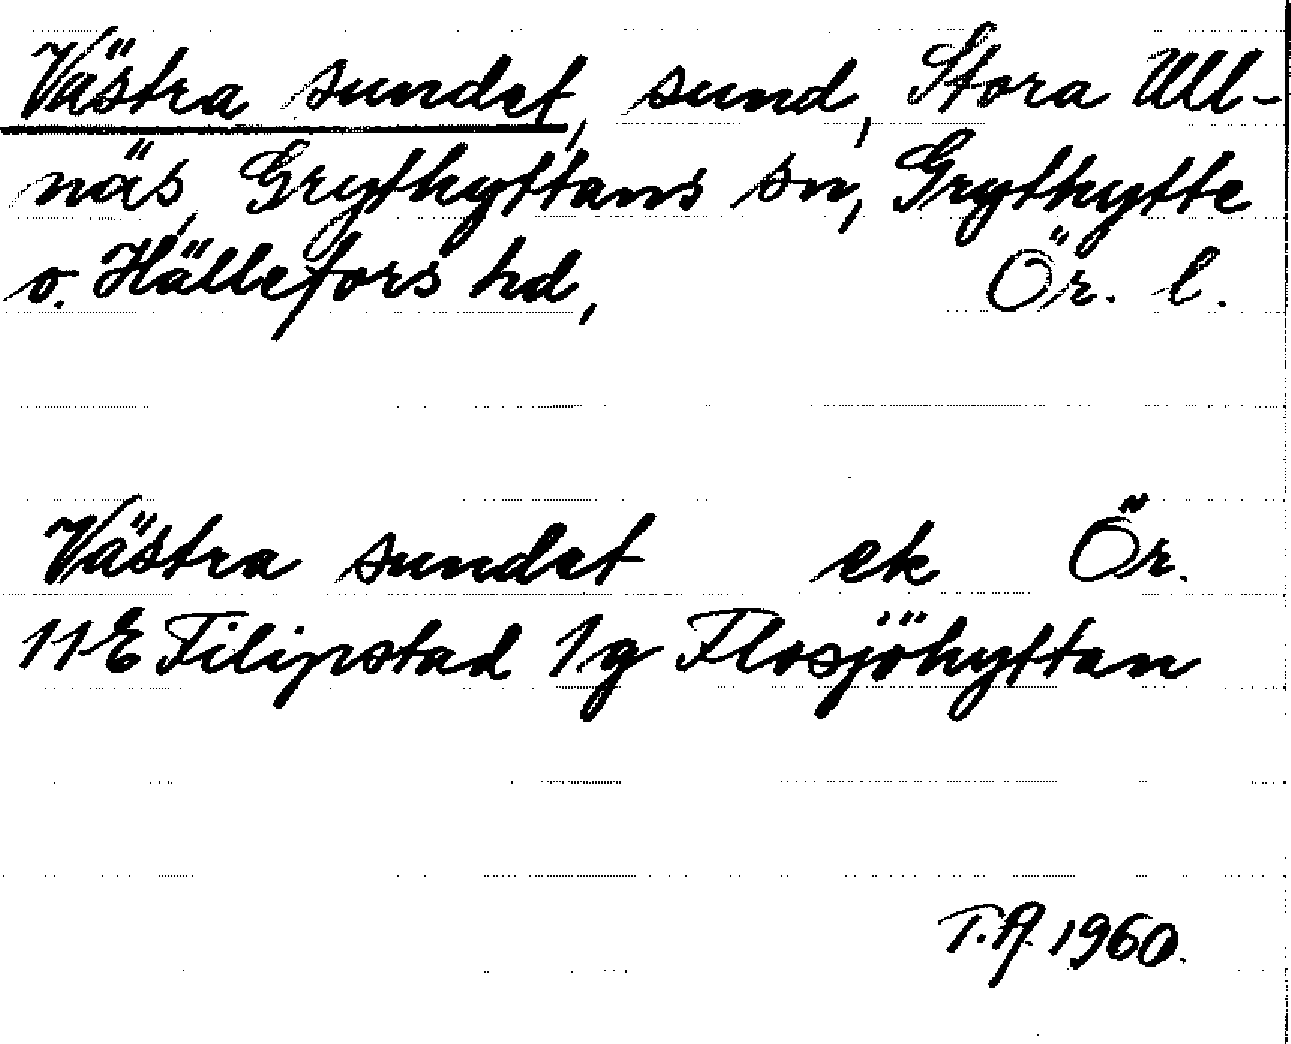 Västra sundet, sund, Stora Ull-
näs, Grythyttans sn, Grythytte
o. Hällefors hd, Ör. l.
Västra sundet ek Ör.
11E Filipstad 1g Flosjöhyttan
T.A. 1960.